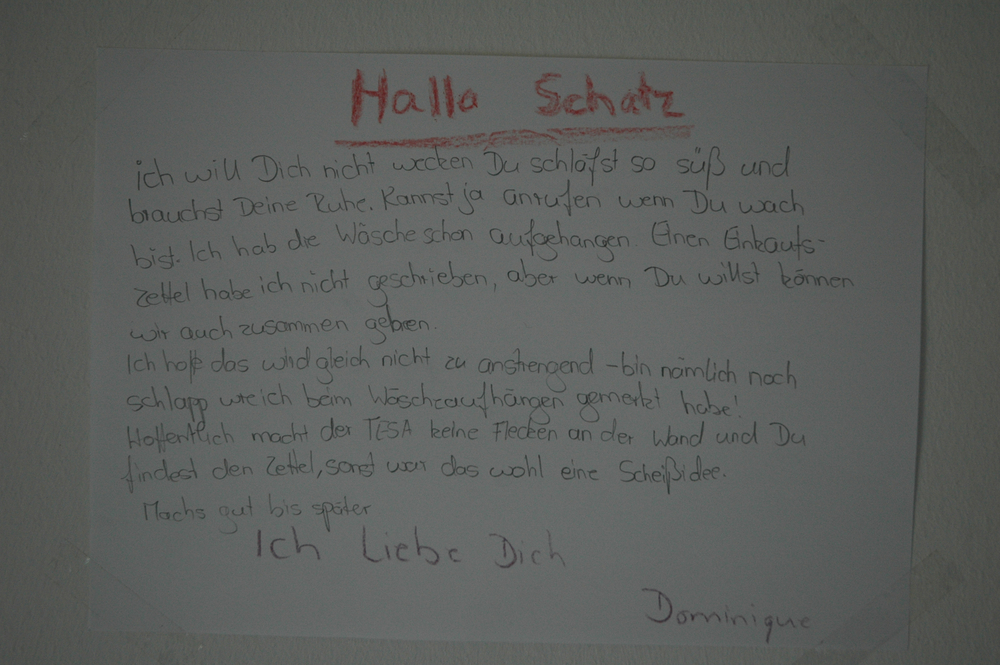 Hallo Schatz
ich will Dich nicht wecken Du schläfst so süß und
brauchst Deine Ruhe. Kannst ja anrufen wenn Du wach
bist. Ich hab die Wäsche schon aufgehangen. Einen Einkaufs-
zettel habe ich nicht geschrieben, aber wenn Du willst können
wir auch zusammen gehen.
Ich hoffe das wird gleich nicht zu anstrengend - bin nämlich noch
schlapp wie ich beim Wäscheaufhängen gemerkt habe!
Hoffentlich macht der TESA keine Flecken an der Wand und Du
findest den Zettel, sonst war das wohl eine Scheißidee.
Machs gut bis später
Ich Liebe Dich
Dominique